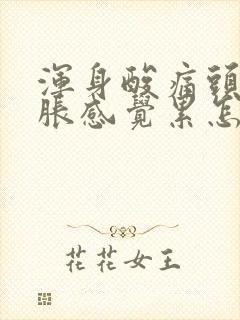 渾身酸痛頭
脹感覺累怎
花花女王